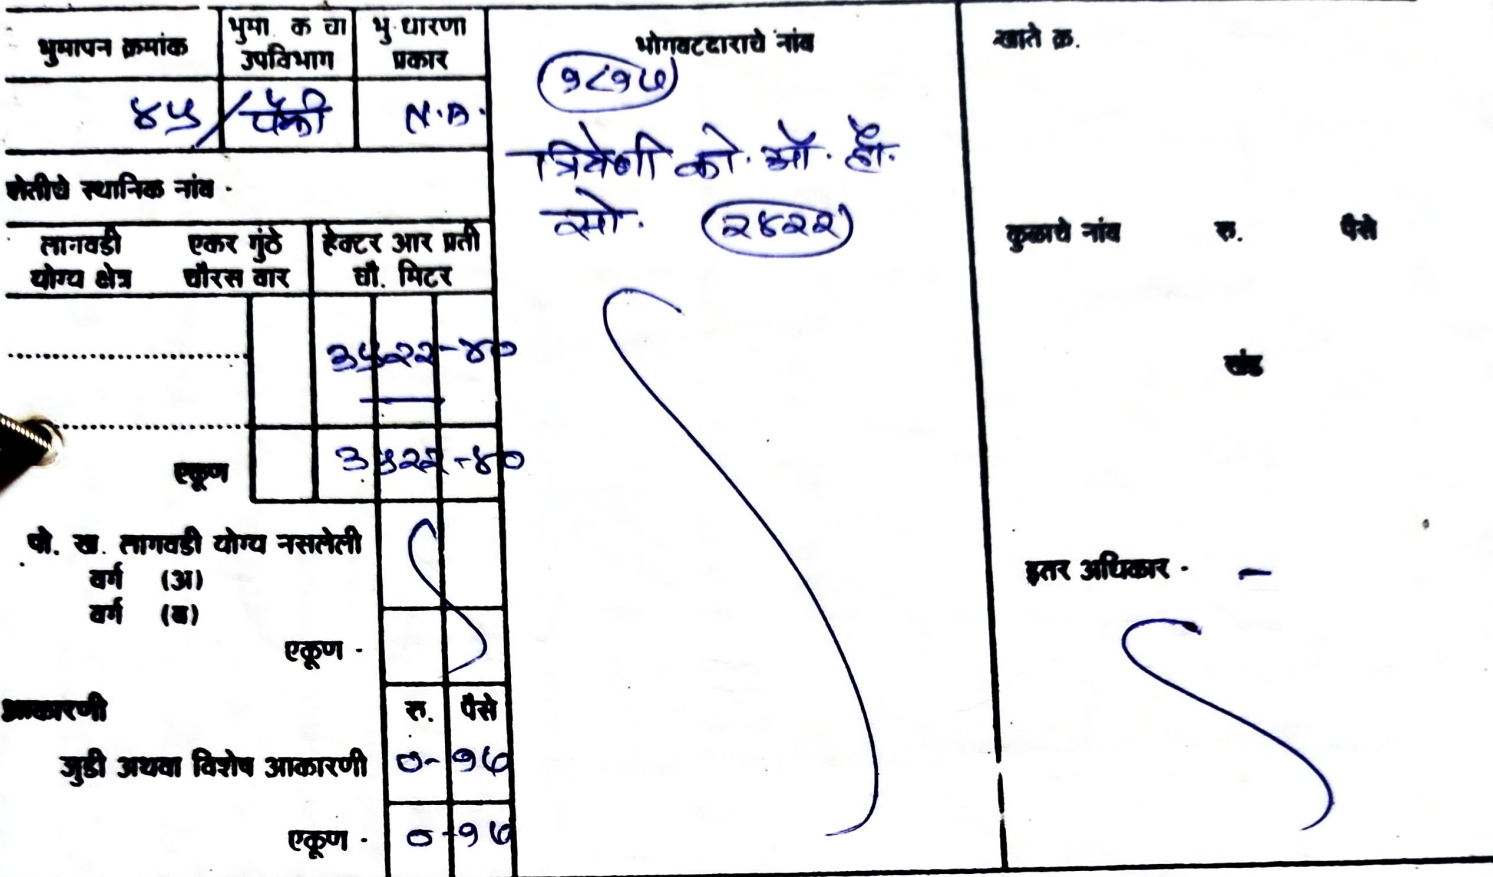 भुमापन क्रमांक
भुमा. क चा उपविभाग
भु.धारणा प्रकार
४५/पैकी
N.A.
शेतीचे स्थानिक नांव -
लागवडी योग्य क्षेत्र
एकर गुंठे चौरस वार
हेक्टर आर प्रती चौ. मिटर
३५२२-४०
एकूण ३५२२-४०
पो. ख. लागवडी योग्य नसलेली
वर्ग (अ)
वर्ग (ब)
एकूण -
आकारणी रु. पैसे
जुडी अथवा विशेष आकारणी ०-१७
एकूण - ०-१७
भोगवटदाराचे नांव
१८१७
त्रिवेणी को. ऑ. हौ.
सो. २४२२
खाते क्र.
कुळाचे नांव रु. पैसे
खंड
इतर अधिकार - -